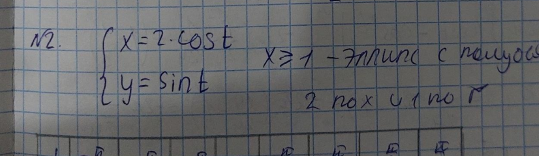 N2. { x = 2·cost
y = sint
x ≥ 1 - Эллипс с полуос
2 по х и 1 по